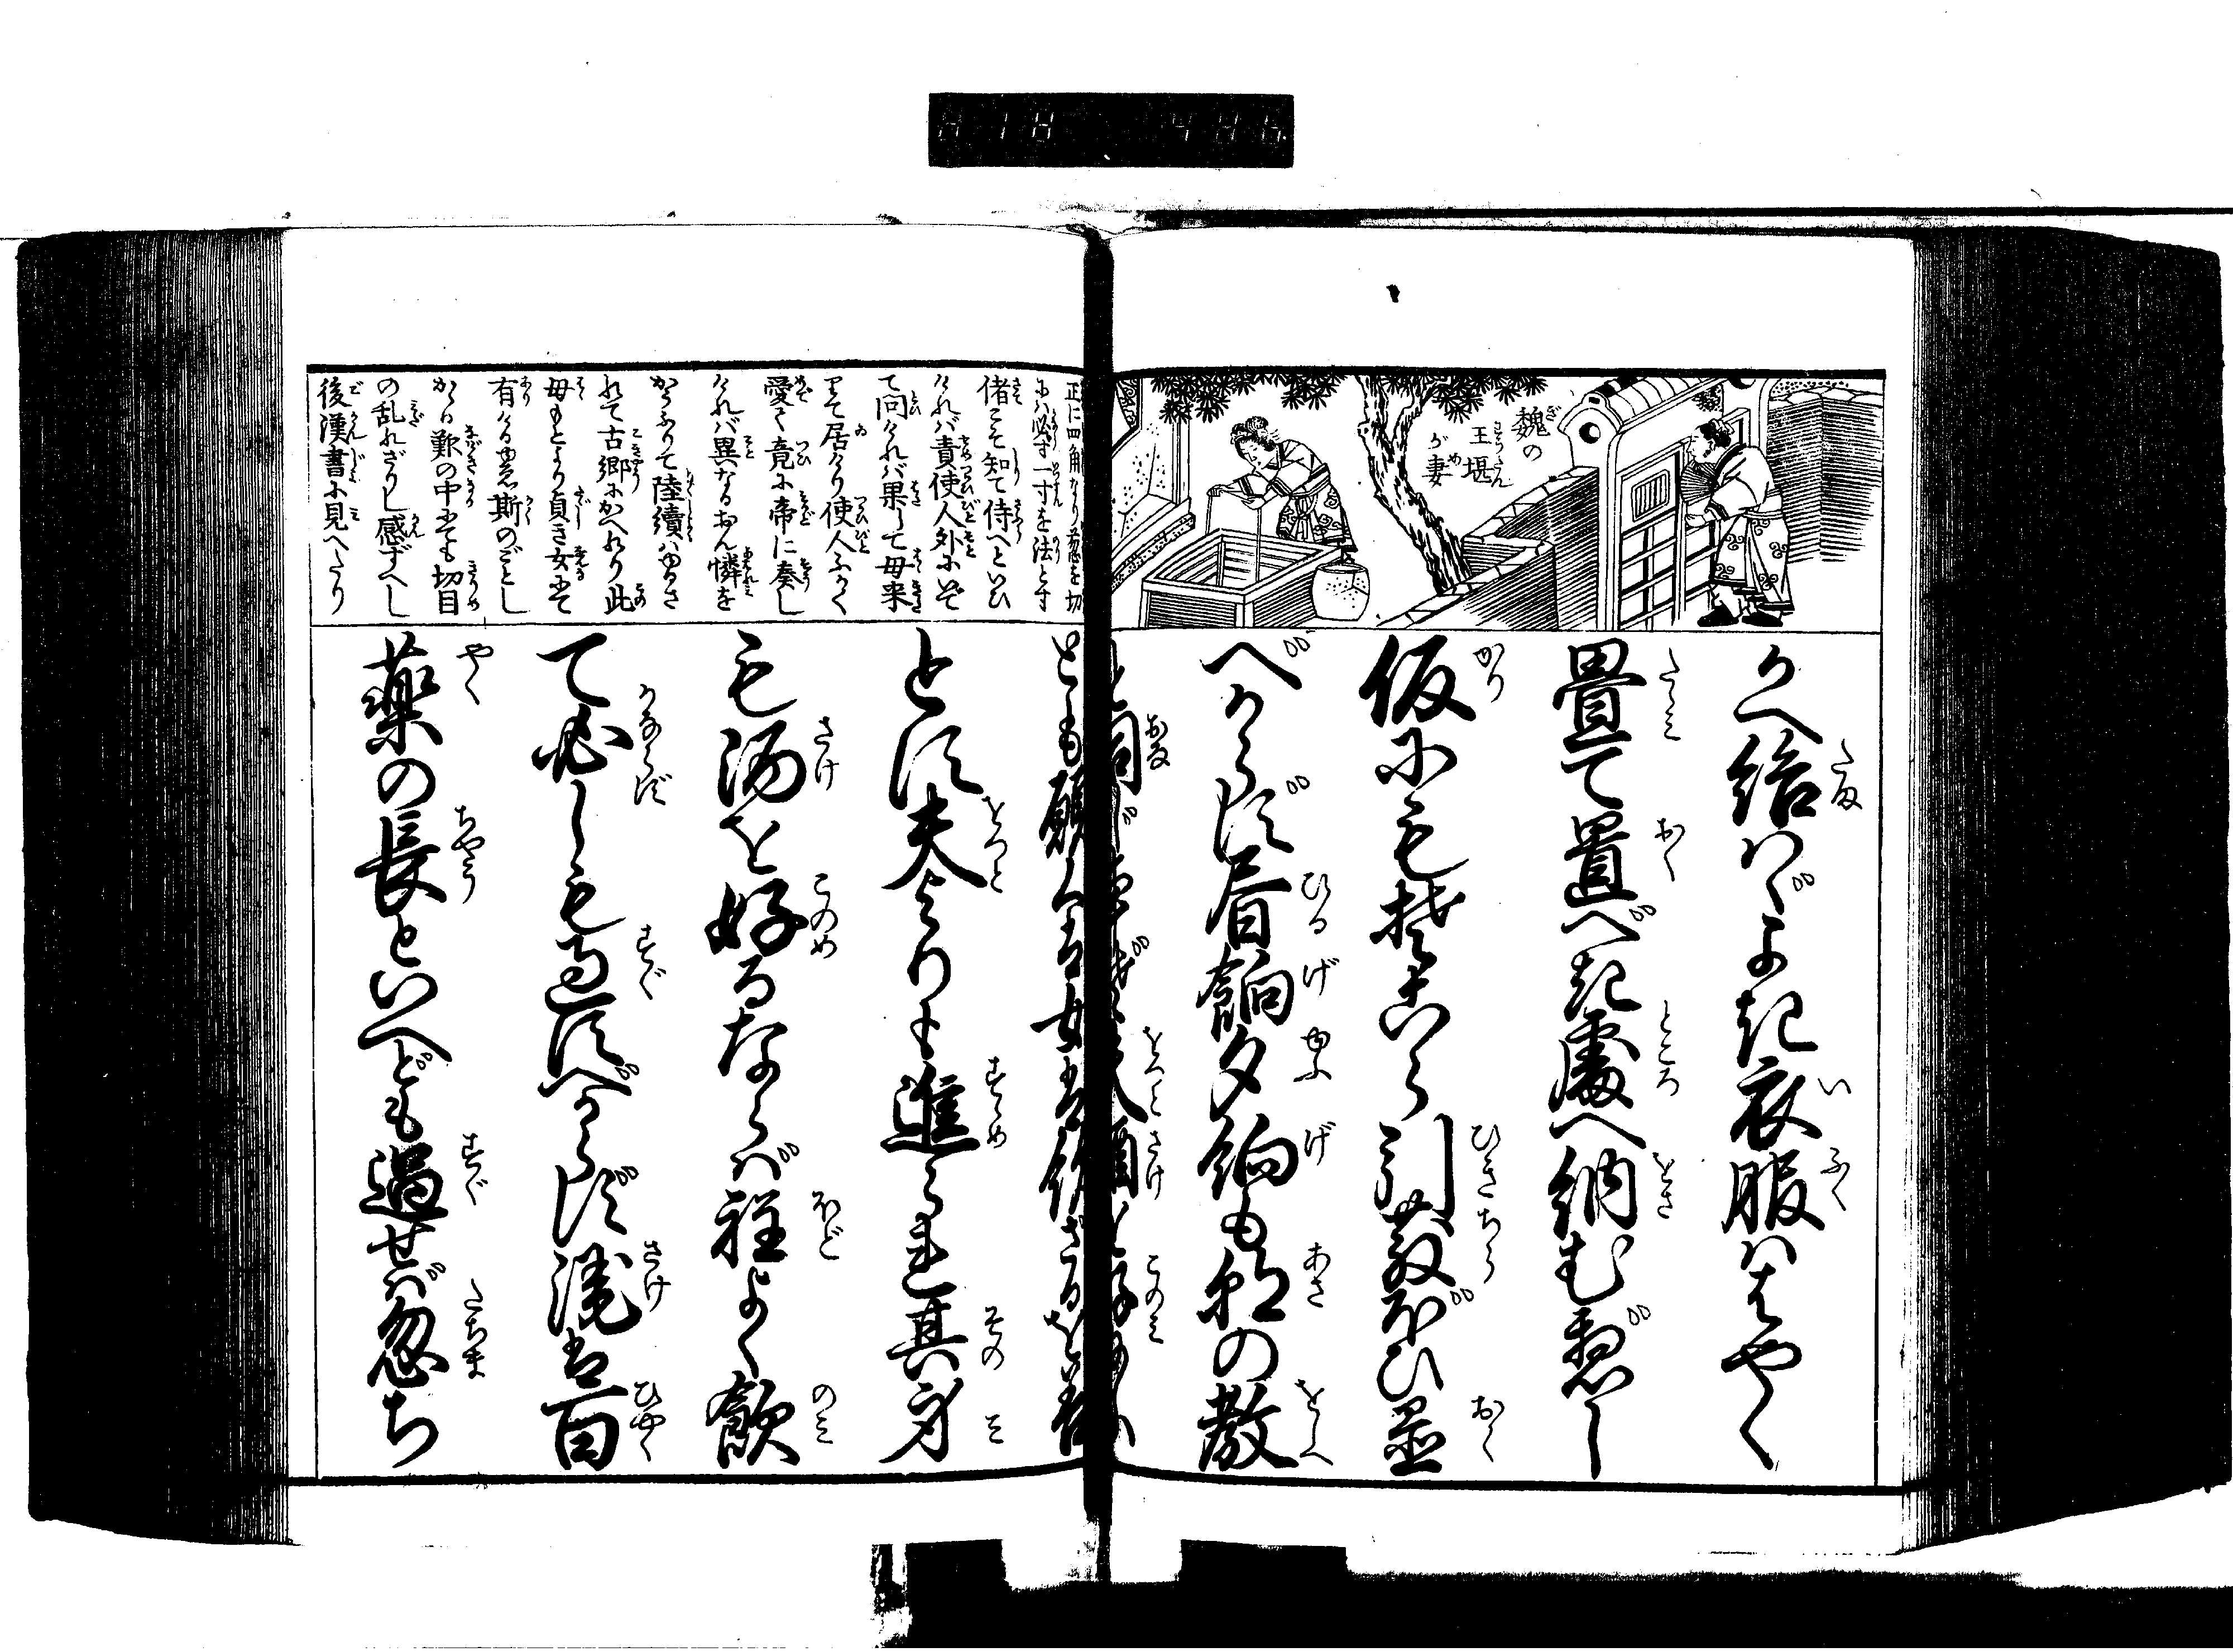 魏の
王堪
が妻
かへ給はゞよき衣服ははやく
畳て置べき處へ納むべし
仮にもそこら引散ぼひ置
べからず昼餉夕餉も朝の教
とも願人は女は飲ざるを善
とす夫よりも進られ其身
も酒を好るならば程よく飲
て必しも過すべからず酒は百
薬の長といへども過せば忽ち
正に四角なり葱を切
には必ず一寸を法とす
偖こそ知て侍へといひ
ければ責使人外に出
て問ければ果して母来
りて居けり使人ふかく
愛て竟に帝に奏し
ければ異なるおん憐を
かうふりて陸續はゆるさ
れて古郷にかへれり此
母もとより貞き女にて
有ける故斯のごとし
かゝる歎の中にても切目
の乱れざりし感ずべし
後漢書に見へたり